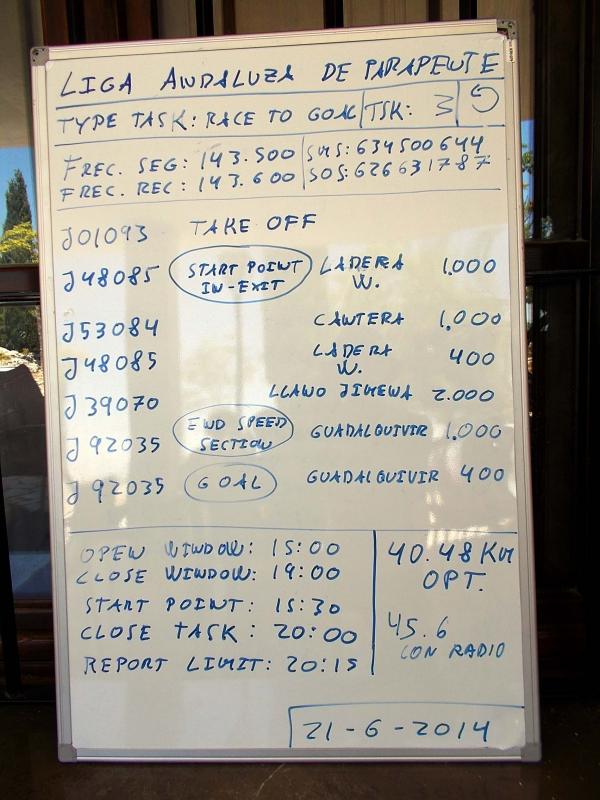 LIGA ANDALUZA DE PARAPENTE
TYPE TASK: RACE TO GOAL TSK: 3
FREC. SEG: 143.500 SMS: 634500644
FREC. REC: 143.600 SOS: 626631787
J01093 TAKE OFF
J48085 START POINT IN-EXIT LADERA W. 1.000
J53084 CANTERA 1,000
J48085 LADERA W. 400
J39070 LLANO JIMENA 2.000
J92035 END SPEED SECTION GUADALQUIVIR 1.000
J92035 GOAL GUADALQUIVIR 400
OPEN WINDOW: 15:00
CLOSE WINDOW: 19:00
START POINT: 15:30
CLOSE TASK: 20:00
REPORT LIMIT: 20:15
40.48 Km
OPT.
45.6
CON RADIO
21-6-2014